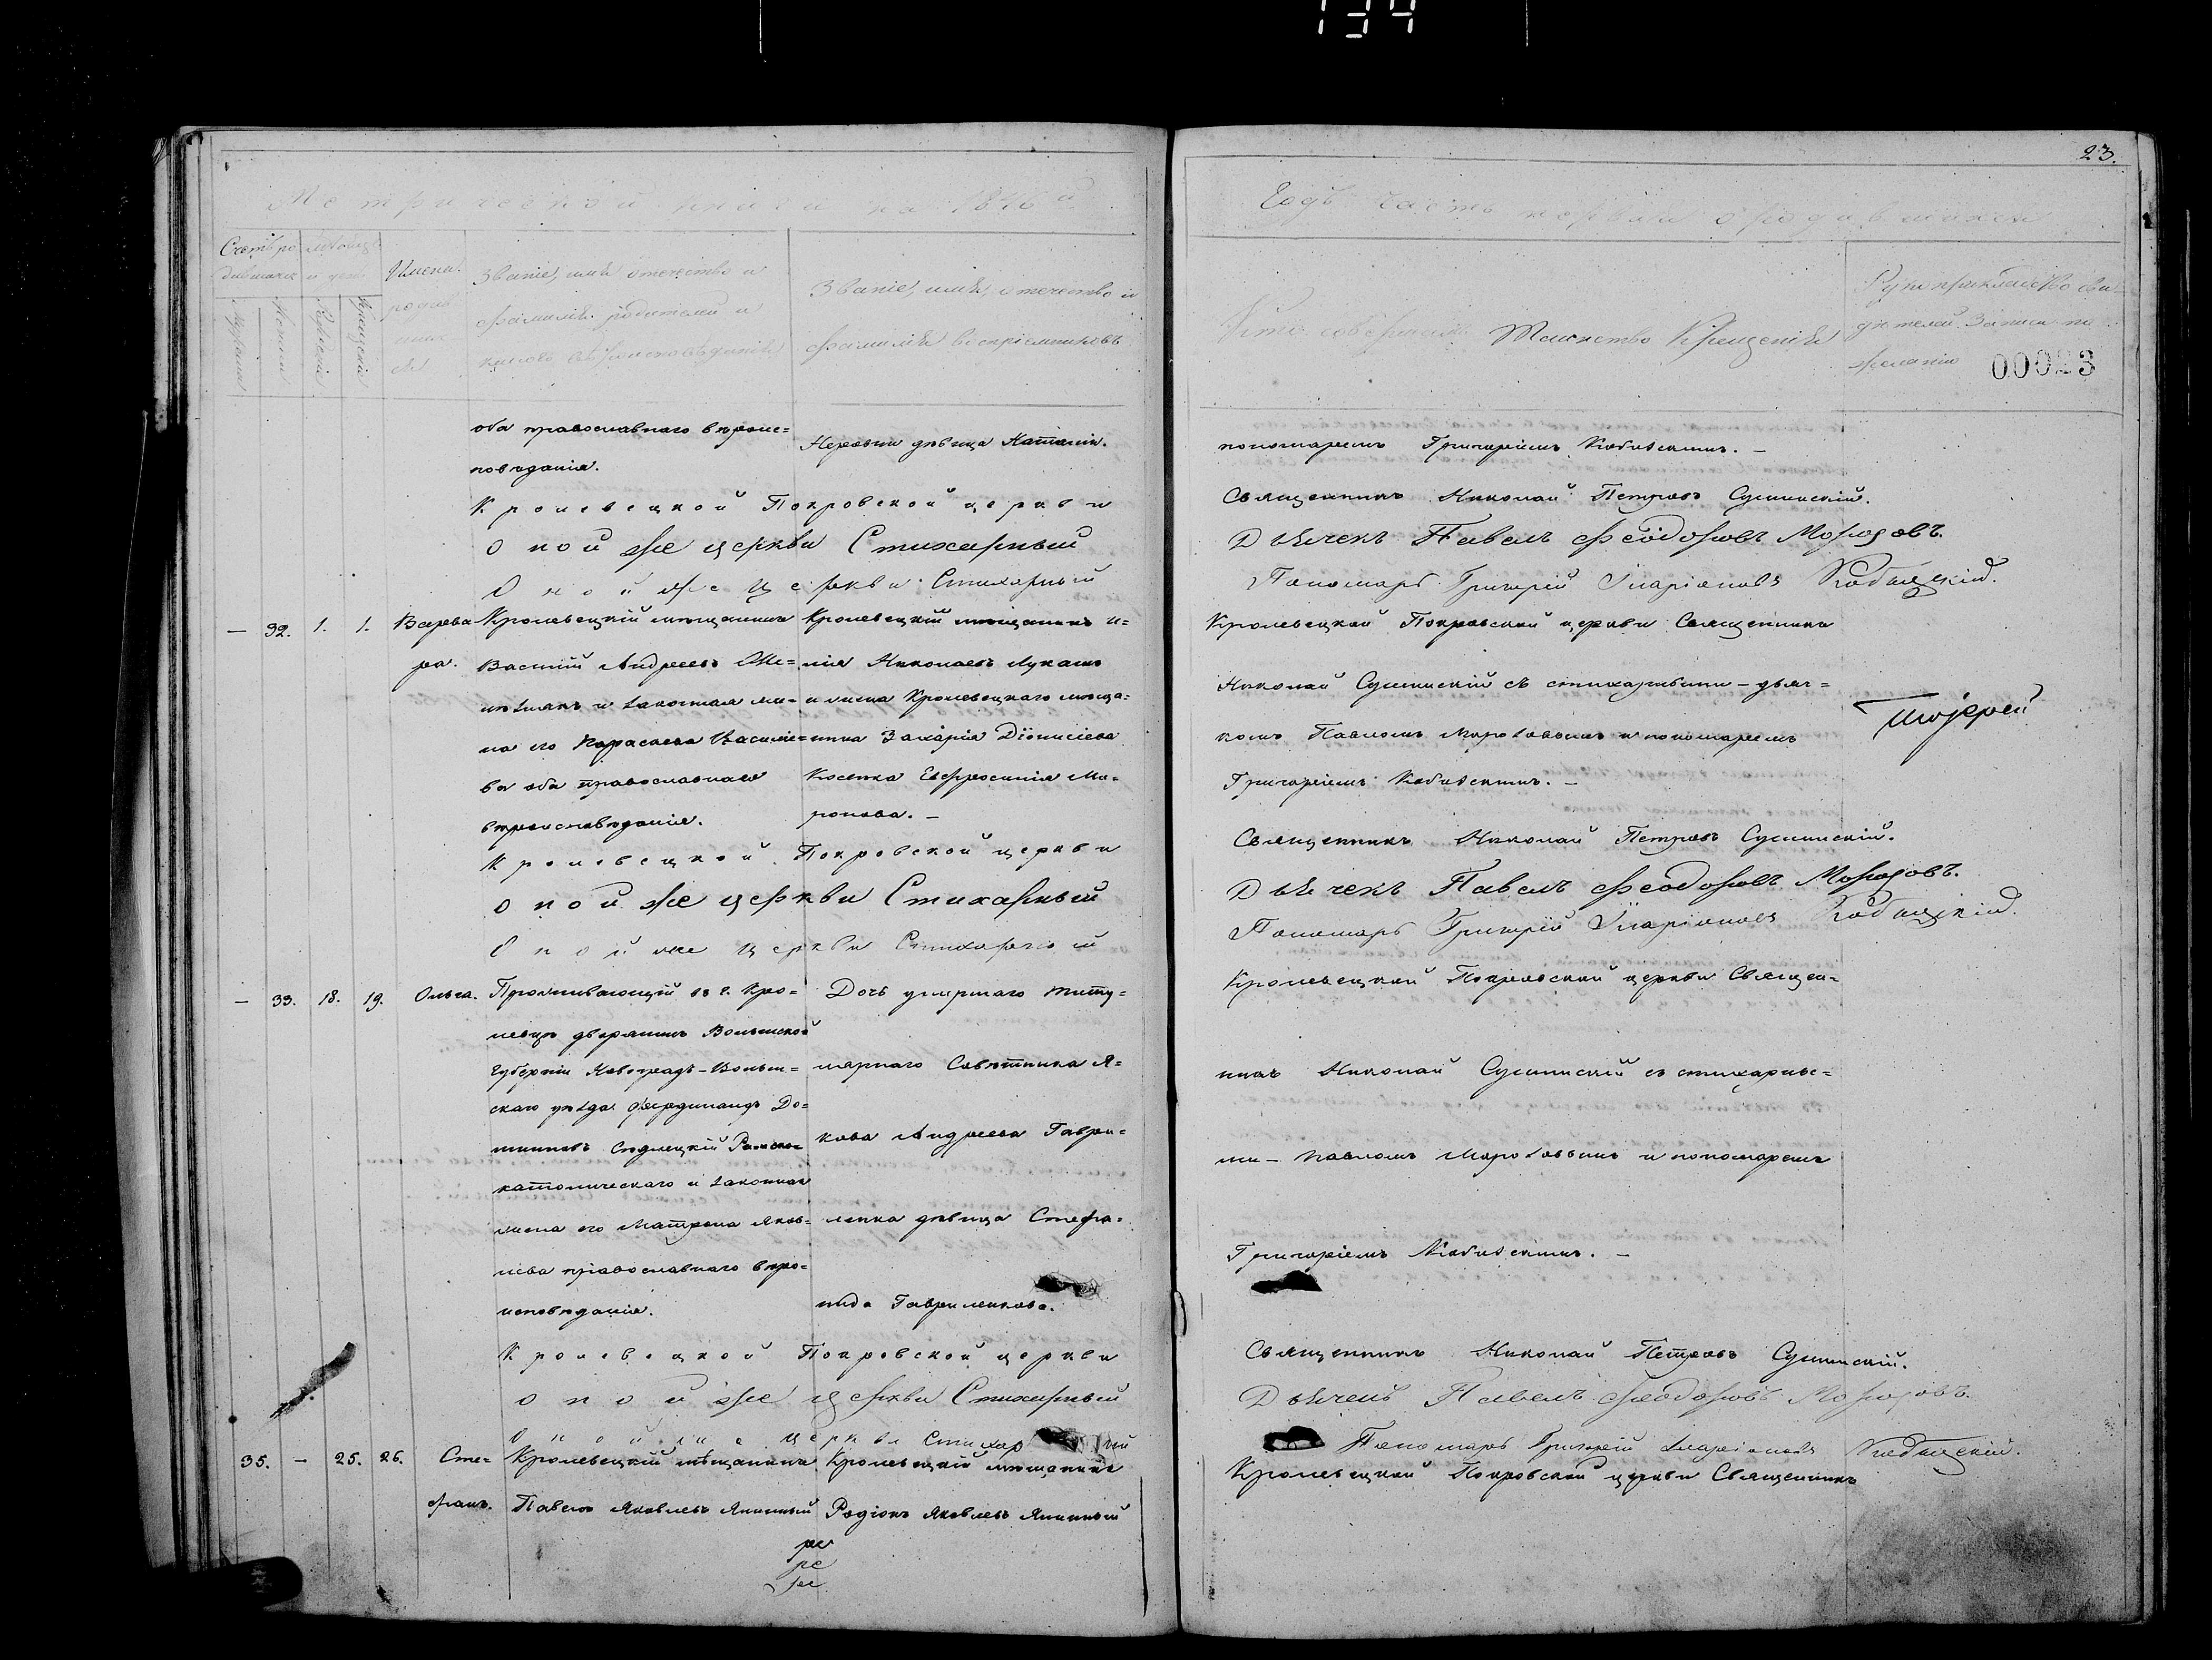 134
23.
Метрической книги на 1876 й
Годъ часть первая о родившихся
Счетъ ро
дившихся
Мѣсяцъ
и день
Мужеска
Женска
Рожденія
Крещенія
Имена
родив
шихся
Званіе, имя, отечество и
фамилія родителей и
какого вѣроисповѣданія
Званіе, имя, отечество и
фамилія воспріемниковъ
Кто совершалъ Таинство Крещенія
Рукоприкладство сви-
дѣтелей записи по
желанію
00023
оба православнаго вѣроис=
повѣданія.
дѣвица Наталія.
пономаремъ Григоріемъ Кобызскимъ. —
Кролевецкой Покровской церкви
Священникъ Николай Петровъ Сушинскій.
Оной же церкви Стихарный
Дьячекъ Павелъ Феодоровъ Морозовъ.
Оной же Церкви Стихарный
Пономарь Григорій Иларіоновъ
— 32. 1. 1.
Варва
ра.
Кролевецкій мѣщанинъ
Василій Андреевъ
и законная же=
на его Параскева Василіе=
ва оба православнаго
вѣроисповѣданія.
Кролевецкій мѣщанинъ И=
лія Николаевъ Лукашъ
и жена Кролевецкаго мѣща=
нина Захарія Діонисіева
Евфросинія Ми=
ронова. —
Кролевецкой Покровской церкви Священникъ
Николай Сушинскій съ стихарными — дьяч=
комъ Павломъ Морозовымъ и пономаремъ
Григоріемъ Кобызскимъ. —
Кролевецкой Покровской церкви
Священникъ Николай Петровъ Сушинскій.
Оной же церкви Стихарный
Дьячекъ Павелъ Феодоровъ Морозовъ.
Оной же церкви Стихарный
Пономарь Григорій Иларіоновъ
— 33. 18. 19.
Ольга.
Проживающій въ г. Кро=
левцѣ дворянинъ Волынской
Губерніи Новоградъ-Волын=
скаго уѣзда Фердинандъ До=
миновъ Сѣдлецкій Римско=
католическаго и законная
жена его Матрона Яков=
лева православнаго вѣро=
исповѣданія.
Дочь умершаго титу=
лярнаго Совѣтника Я=
кова Андреева Гаври=
ленка дѣвица Стефа=
нида Гавриленкова.
Кролевецкой Покровской церкви Священ=
никъ Николай Сушинскій съ стихарны=
ми — Павломъ Морозовымъ и пономаремъ
Григоріемъ Кобызскимъ. —
Кролевецкой Покровской церкви
Священникъ Николай Петровъ Сушинскій.
оной же церкви Стихарный
Дьячекъ Павелъ Феодоровъ Морозовъ.
Оной же церкви
Пономарь Григорій Иларіоновъ
35. — 25. 26.
Сте=
фанъ.
Кролевецкій мѣщанинъ
Павелъ Яковлевъ
Кролевецкій мѣщанинъ
Родіонъ Яковлевъ
Кролевецкой Покровской церкви Священникъ
ре
ре